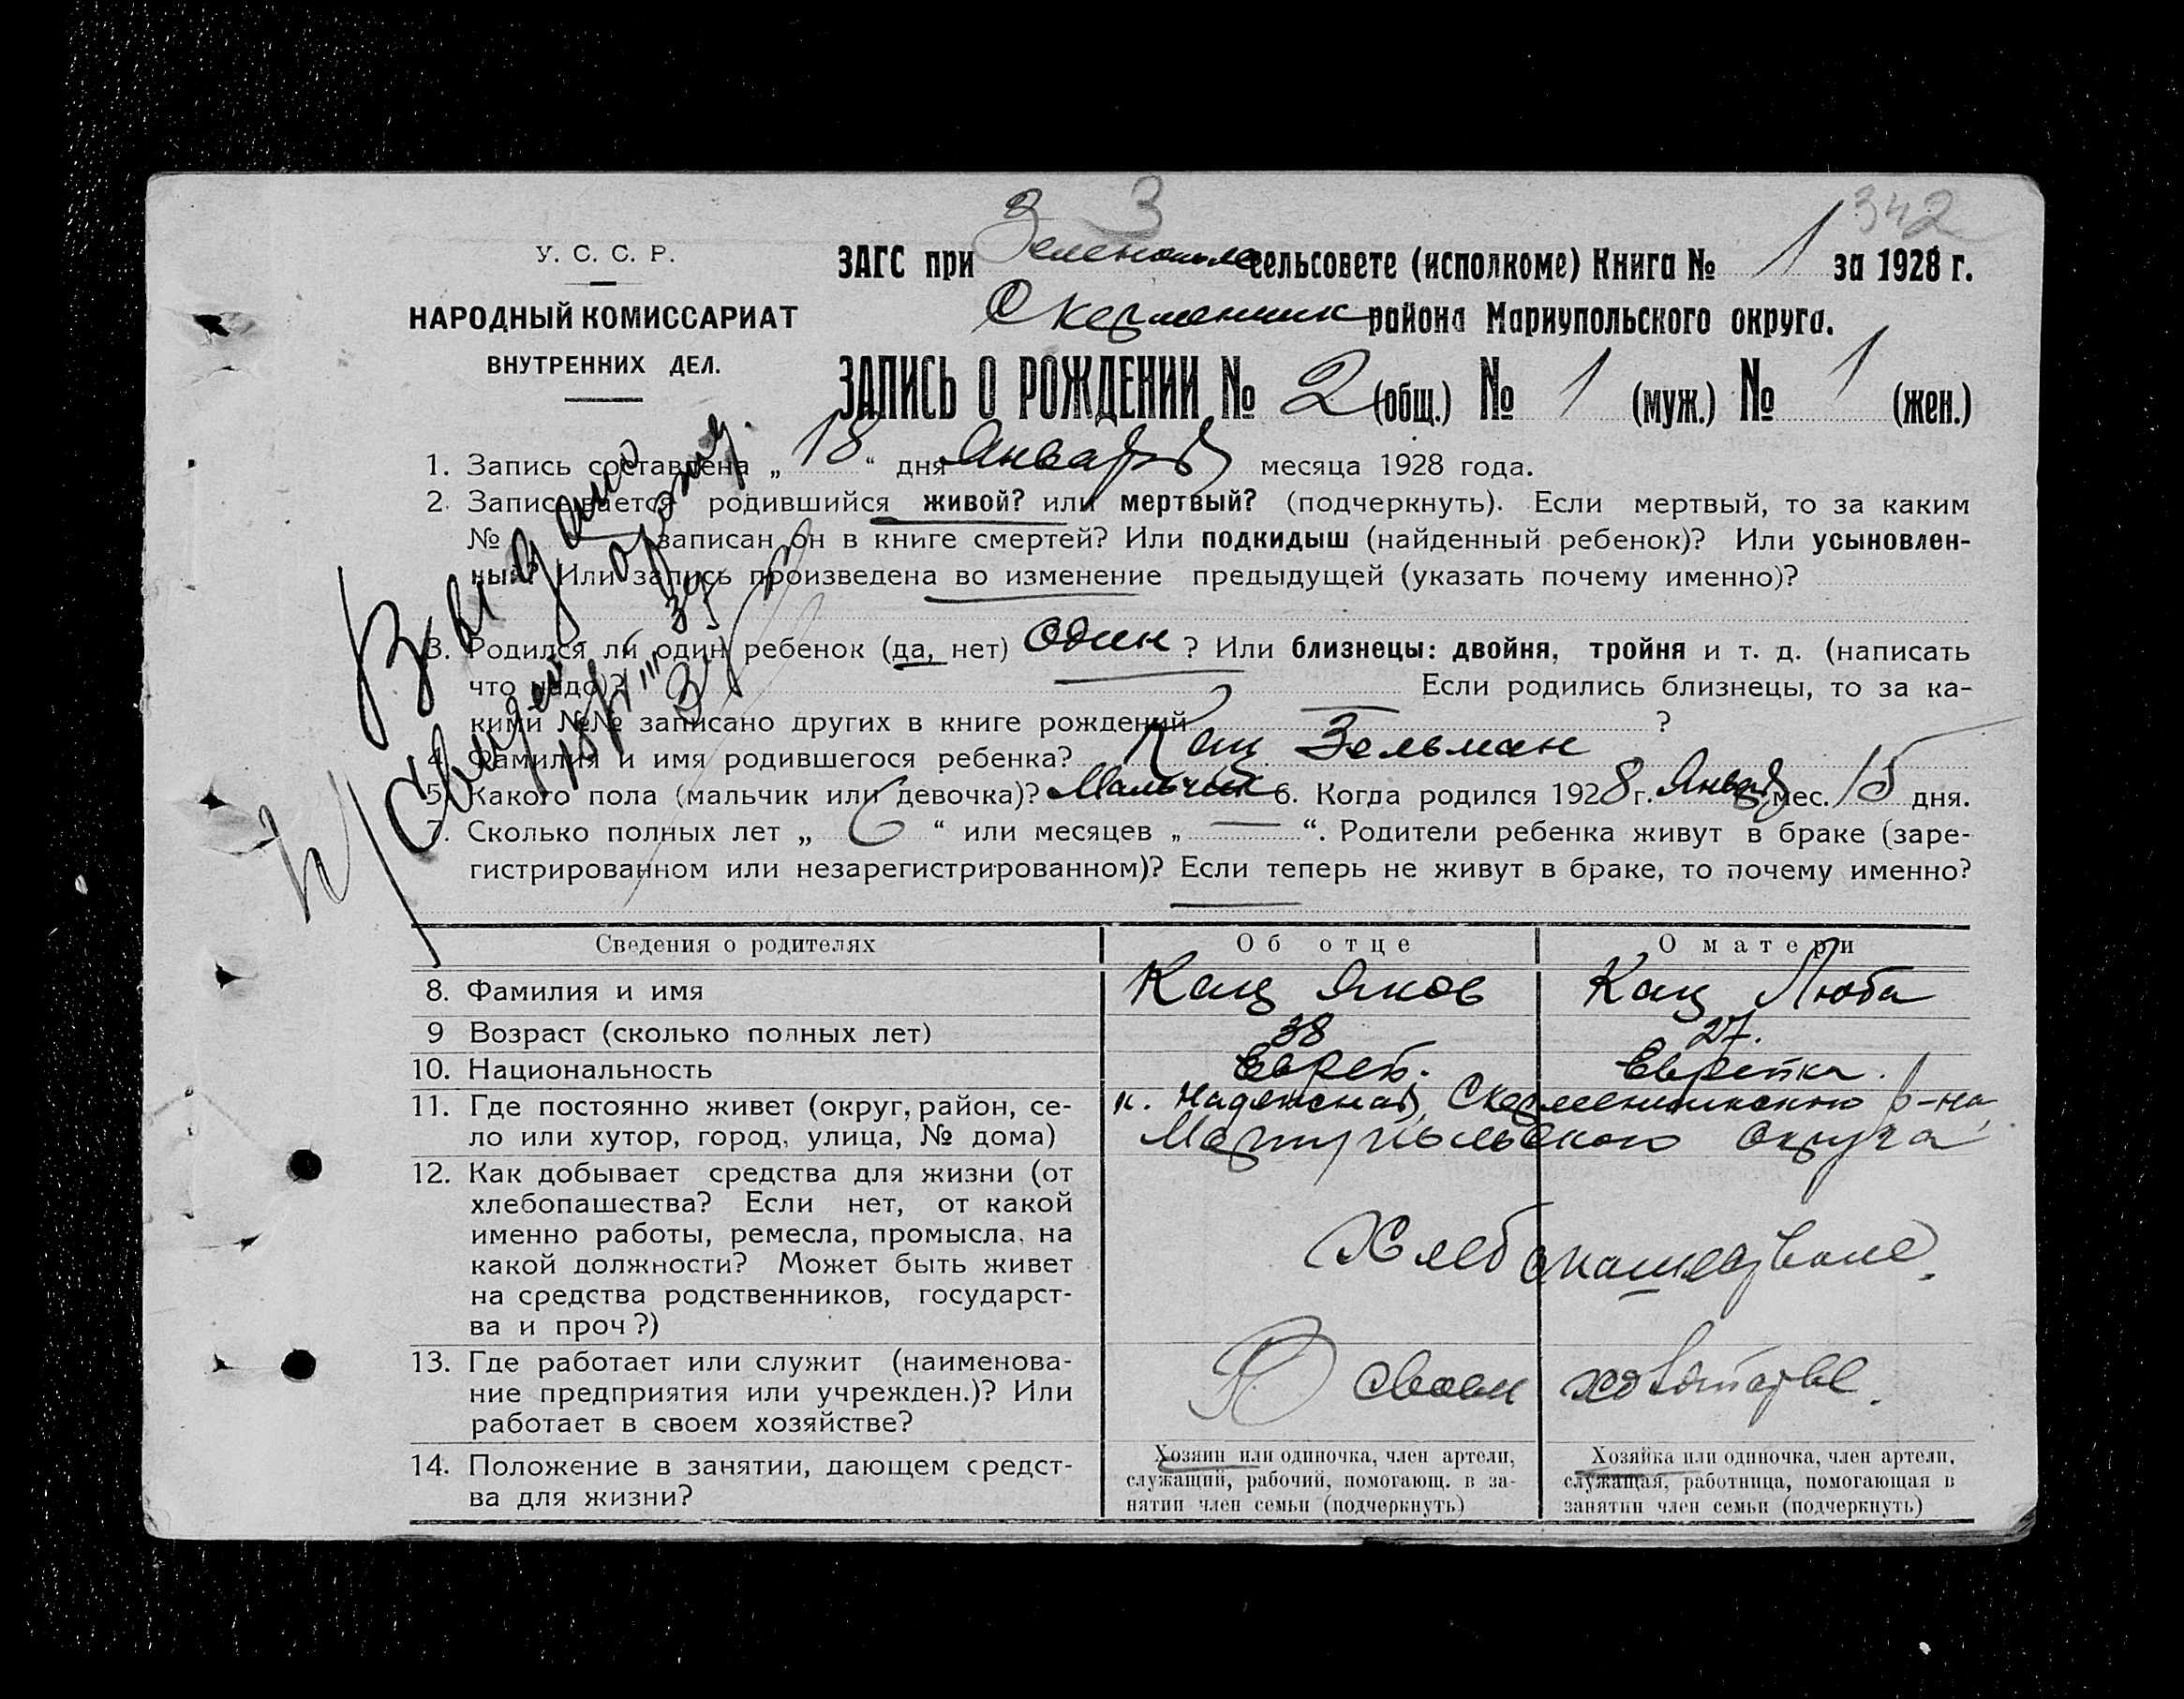 3
342
У. С. С. Р.
НАРОДНЫЙ КОМИССАРИАТ
ВНУТРЕННИХ ДЕЛ.
ЗАГС при Зеленопольс сельсовете (исполкоме) Книга № 1 за 1928 г.
района Мариупольского округа.
ЗАПИСЬ О РОЖДЕНИИ № 2 (общ.) № 1 (муж.) № 1 (жен.)
1. Запись составлена „ 18 “ дня Января месяца 1928 года.
2. Записывается родившийся живой? или мертвый? (подчеркнуть). Если мертвый, то за каким
№ записан он в книге смертей? Или подкидыш (найденный ребенок)? Или усыновлен-
ный? Или запись произведена во изменение предыдущей (указать почему именно)?
3. Родился ли один ребенок (да, нет) Один ? Или близнецы: двойня, тройня и т. д. (написать
что надо)? Если родились близнецы, то за ка-
кими №№ записано других в книге рождений ?
4. Фамилия и имя родившегося ребенка? Кац Зельман
5. Какого пола (мальчик или девочка)? Мальчик 6. Когда родился 1928 г. Января мес. 15 дня.
7. Сколько полных лет „ 6 “ или месяцев „ — “. Родители ребенка живут в браке (заре-
гистрированном или незарегистрированном)? Если теперь не живут в браке, то почему именно?
Выдано
Сведения о родителях Об отце О матери
8. Фамилия и имя Кац Яков Кац Люба
9 Возраст (сколько полных лет) 38 27.
10. Национальность Еврей. Еврейка.
11. Где постоянно живет (округ, район, се-
ло или хутор, город, улица, № дома)
к. Надежная, р-на,
Мариупольского округа
12. Как добывает средства для жизни (от
хлебопашества? Если нет, от какой
именно работы, ремесла, промысла, на
какой должности? Может быть живет
на средства родственников, государст-
ва и проч ?)
Хлебопашество.
13. Где работает или служит (наименова-
ние предприятия или учрежден.)? Или
работает в своем хозяйстве?
В своем хозяйстве.
14. Положение в занятии, дающем средст-
ва для жизни?
Хозяин или одиночка, член артели,
служащий, рабочий, помогающ. в за-
нятии член семьи (подчеркнуть)
Хозяйка или одиночка, член артели,
служащая, работница, помогающая в
занятии член семьи (подчеркнуть)